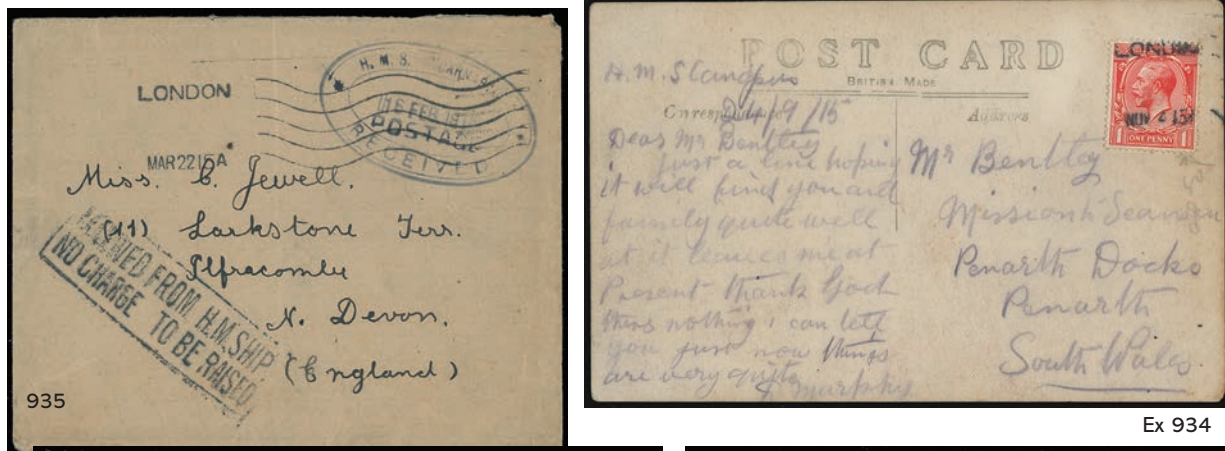 LONDON
MAR 22 15 A
H. M. S.
16 FEB 191
POSTAGE
RECEIVED
Miss. C. Jewell.
(11) Larkstone Terr.
Ilfracombe
N. Devon.
(England)
RECEIVED FROM H.M. SHIP
NO CHARGE TO BE RAISED
935
POST CARD
BRITISH MADE
Correspondence
Address
H.M.S
24/9/15
Dear Mr Bentley
just a line hoping
it will find you and
family quite well
as it leaves me at
Present thank God
thers nothing i can tell
you just now things
are very quite
J. Murphy
LONDON
NOV 4 15
ONE PENNY
Mr Bentley
Mission to Seamen
Penarth Docks
Penarth
South Wales.
Ex 934